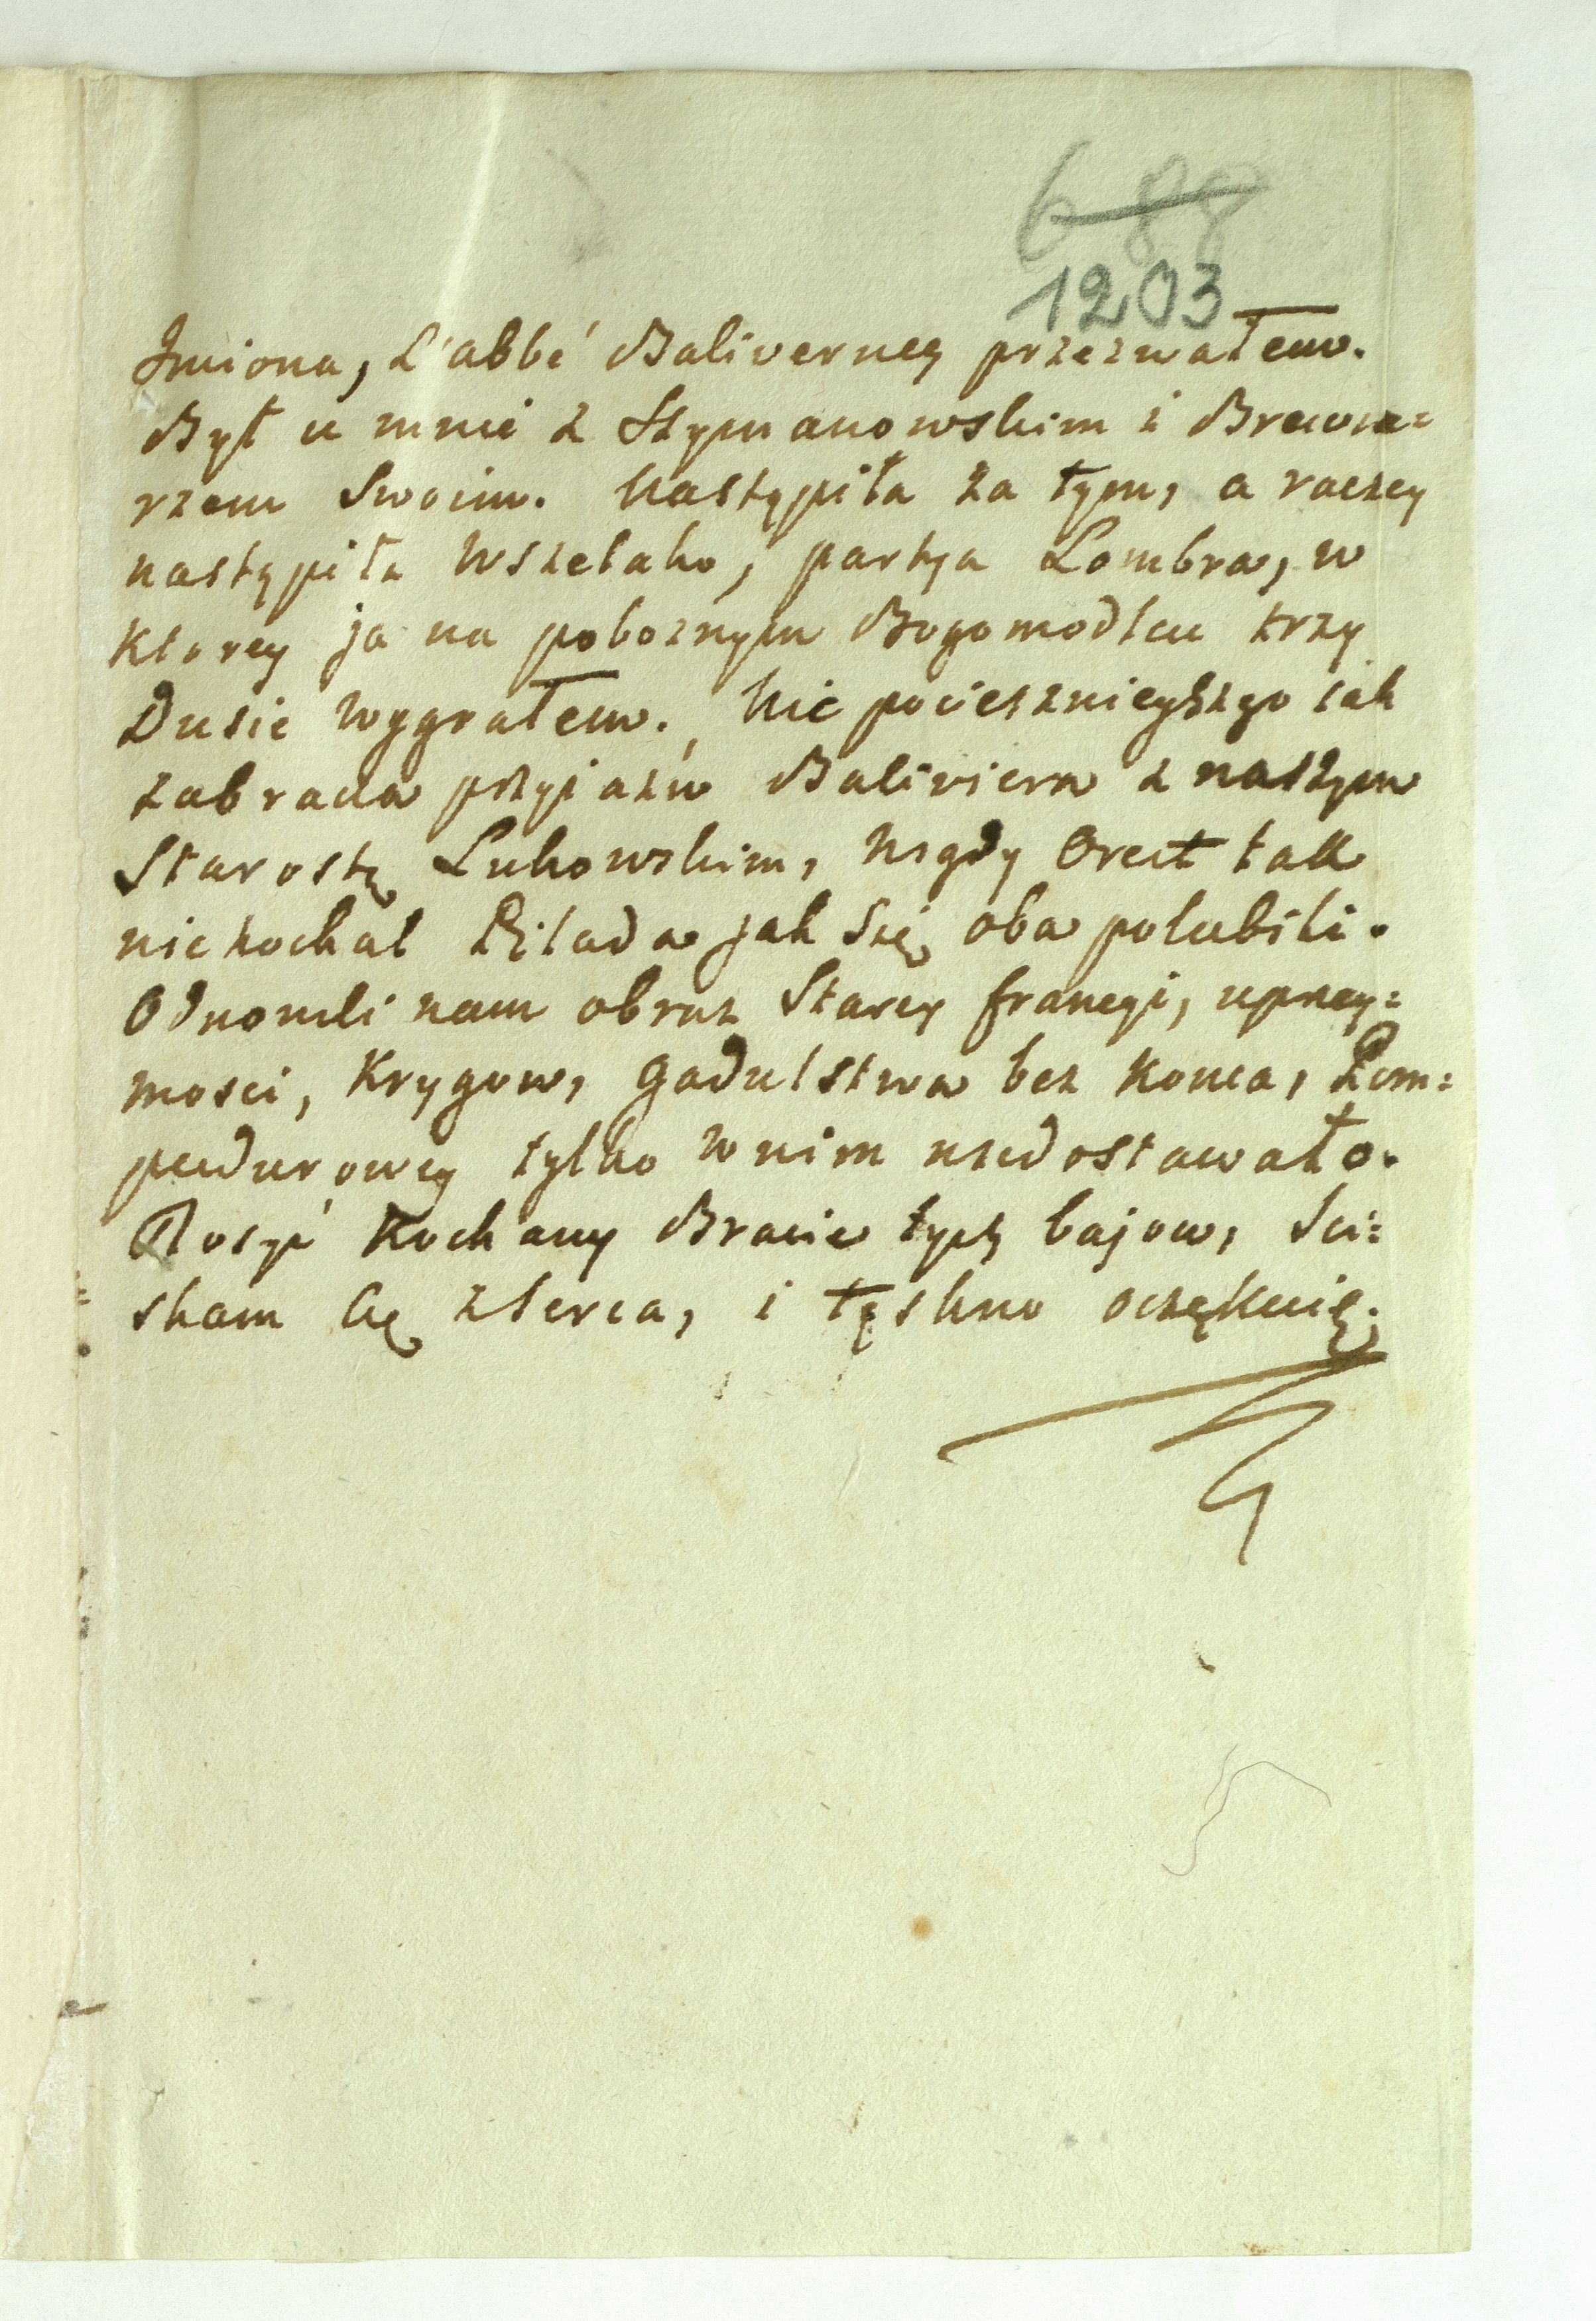 688
1203
Imiona, L'abbé Baliverney przezwałem.
Był u mnie z Szymanowskim i Brewia=
rzem Swoim. Nastąpiła za tym, a raczey
nastąpiła wszelako, partya Lombra, w
Ktorey ja na pobożnym Bogomodlcu trzy
Dusie wygrałem. Nic pociesznieyszego iak
zabrana przyiazń Baliviera z naszym
Starostą Lukowskim, nigdy Orest tak
niekochał Pilada jak się oba polubili.
Odnowili nam obraz Starey francyi, uprzey=
mosci, Krygow, gadulstwa bez Konca, Pom=
padurowey tylko w nim niedostawało.
Dosyć Kochany Bracie tych bajow, Sci=
skam Cię z serca, i tęskno oczękuię.